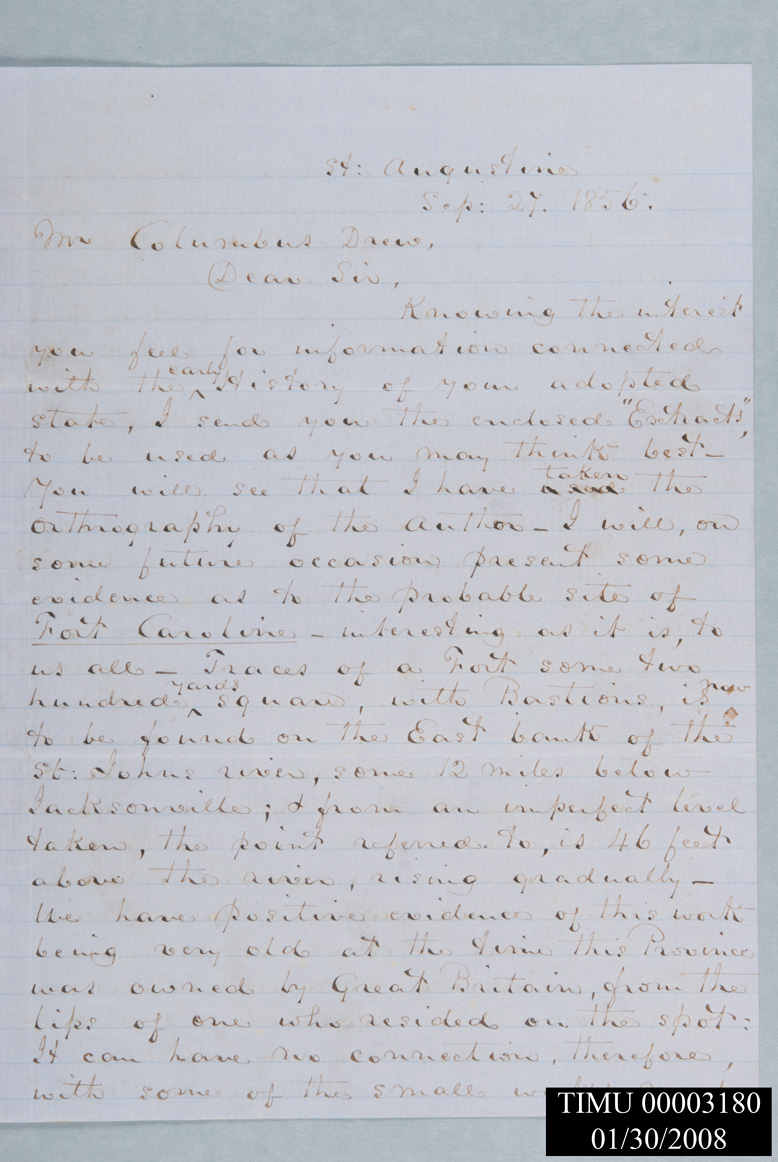 St: Augustine
Sep: 27. 1856.
Mr Columbus Drew,
Dear Sir,
Knowing the interest
you feel for information connected
with the early History of your adopted
state, I send you the enclosed "Extracts",
to be used as you may think best-
You will see that I have used taken the
orthography of the author - I will, on
some future occasion present some
evidence as to the probable site of
Fort Caroline - interesting as it is, to
us all - Traces of a Fort some two
hundred yards square, with Bastions, is now
to be found on the East bank of the
St: Johns river, some 12 miles below
Jacksonville; & from an imperfect level
taken, the point referred to, is 46 feet
above the river, rising gradually -
We have positive evidence of this work
being very old at the time this Province
was owned by Great Britain, from the
lips of one who resided on the spot:
It can have no connection, therefore,
with some of the small
TIMU 00003180
01/30/2008